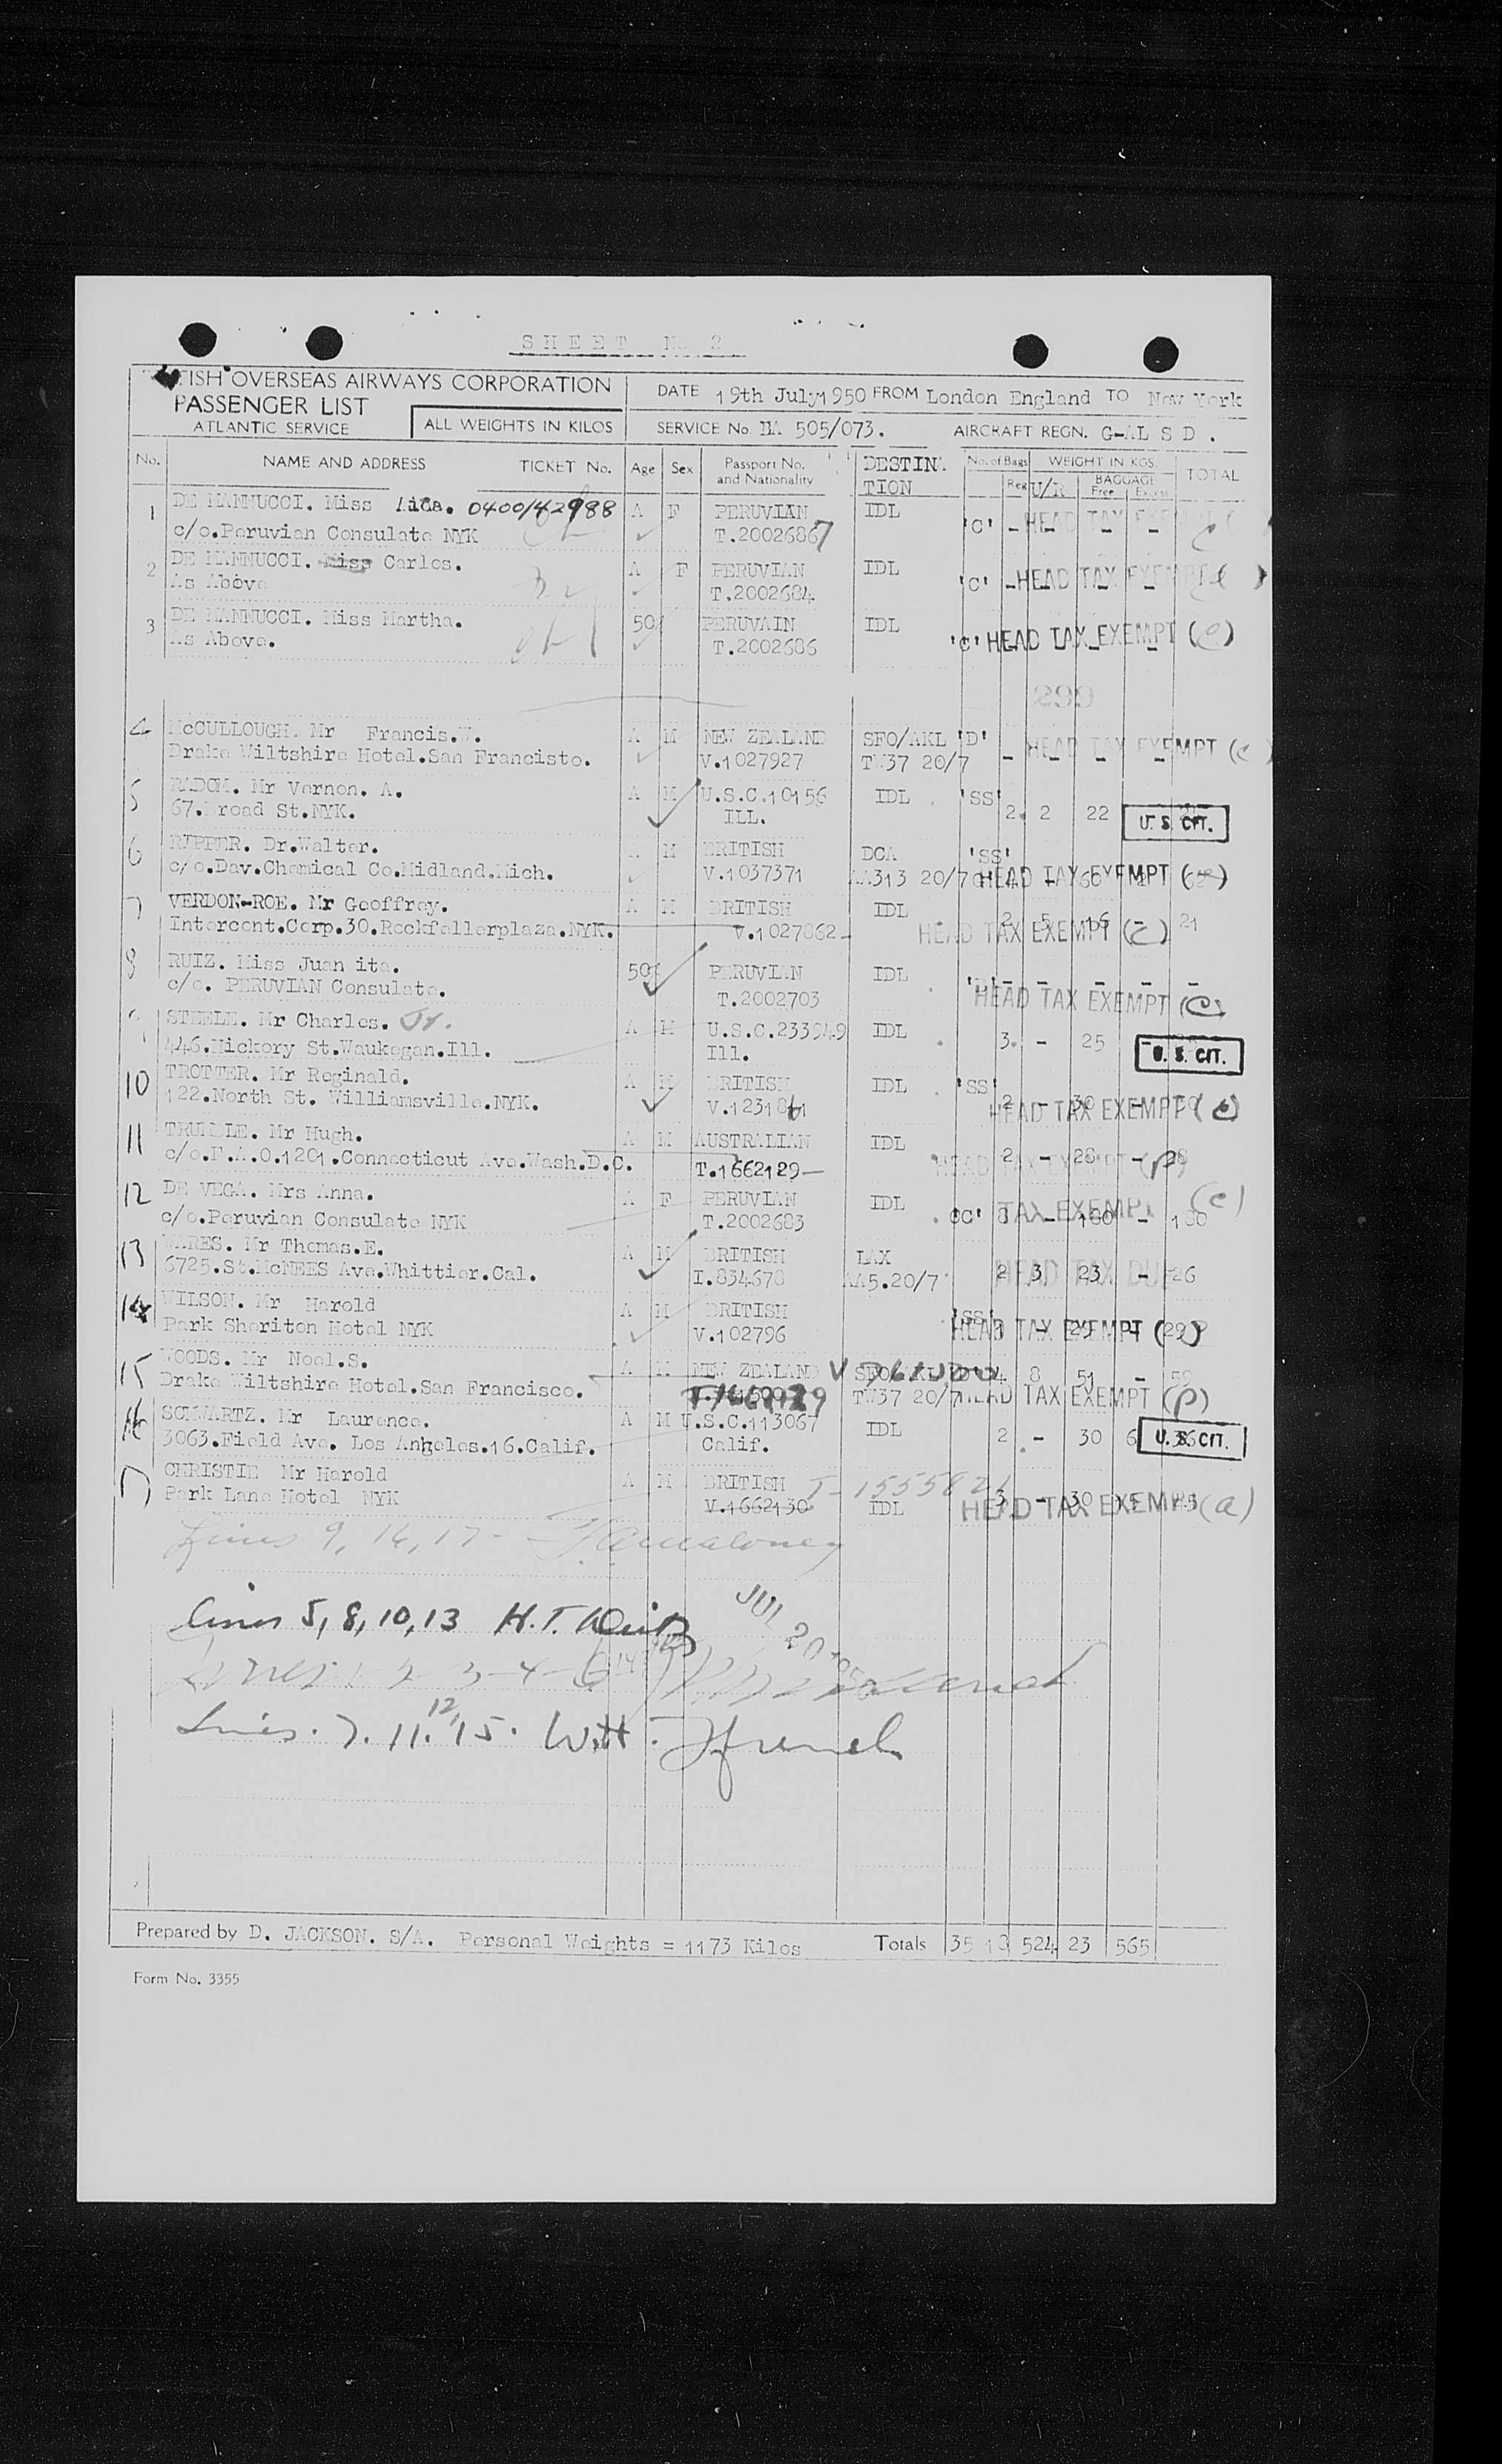 SHEET No 2
ISH OVERSEAS AIRWAYS CORPORATION
PASSENGER LIST
ATLANTIC SERVICE
ALL WEIGHTS IN KILOS
DATE 19th July 1950 FROM London England TO New York
SERVICE No. BA 505/073. AIRCRAFT REGN. G-AL S D.
No. NAME AND ADDRESS TICKET No. Age Sex Passport No. and Nationality DESTIN'. TION No. of Bags Reg U/R WEIGHT IN KGS. BAGGAGE Free Excess TOTAL
1 DE MANNUCCI. Miss Aida. 0400/42988 A F PERUVIAN IDL
c/o.Peruvian Consulate NYK T.20026867 'C' - HEAD TAX EXEMPT
2 DE MANNUCCI. Miss Carlos. A F PERUVIAN IDL
As Above T.2002684 'C' - HEAD TAX EXEMPT
3 DE MANNUCCI. Miss Martha. 50 PERUVAIN IDL
As Above. T.2002686 'C' HEAD TAX EXEMPT (e)
290
4 McCULLOUGH. Mr Francis.W. A M NEW ZEALAND SFO/AKL 'D' HEAD TAX EXEMPT (e)
Drake Wiltshire Hotel.San Francisto. V.1027927 TW37 20/7
5 RADOM. Mr Vernon. A. A M U.S.C.10156 IDL 'SS'
67.Broad St.NYK. ILL. 2 2 22 U. S. CIT.
6 Dr.Walter. M BRITISH DCA 'SS'
c/o.Dav.Chemical Co.Midland.Mich. V.1037371 AA313 20/7 HEAD TAX EXEMPT
7 VERDON-ROE. Mr Geoffrey. A M BRITISH IDL 2 5 16 - 21
Intercont.Corp.30.Rockfellerplaza.NYK. V.1027862 HEAD TAX EXEMPT
8 RUIZ. Miss Juan ita. 50 PERUVIAN IDL
c/o. PERUVIAN Consulate. T.2002703 HEAD TAX EXEMPT (e)
9 STEELE. Mr Charles. Jr. A M U.S.C.233949 IDL
446.Hickory St.Waukegan.Ill. Ill. 3. - 25 U. S. CIT.
10 TROTTER. Mr Reginald. A M BRITISH IDL 'SS'
122.North St. Williamsville.NYK. V.123186 2 - 30 HEAD TAX EXEMPT (e)
11 Mr Hugh. A M AUSTRALIAN IDL 2 - 28 - 28
c/o.F.A.O.1201.Connecticut Ave.Wash.D.C. T.1662129 HEAD TAX EXEMPT (p)
12 DE VEGA. Mrs Anna. A F PERUVIAN IDL (e)
c/o.Peruvian Consulate NYK T.2002683 TAX EXEMPT 180 - 180
13 WARES. Mr Thomas.E. A M BRITISH LAX
6725.St.McNEES Ave.Whittier.Cal. I.834678 AA5.20/7 2 3 23 - 26 HEAD TAX DUE
14 WILSON. Mr Harold A M BRITISH 'SS'
Park Sheriton Hotel NYK V.102796 HEAD TAX EXEMPT
15 WOODS. Mr Noel.S. A M NEW ZEALAND 4 8 51 - 59
Drake Wiltshire Hotel.San Francisco. TW37 20/7 HEAD TAX EXEMPT (p)
16 SCHWARTZ. Mr Laurence. A M U.S.C.113067 IDL
3063.Field Ave. Los Angeles.16.Calif. Calif. 2 - 30 6 36 U. S. CIT.
17 CHRISTIE Mr Harold A M BRITISH T-1555821
Park Lane Hotel NYK V.1662130 IDL 3 - 30 HEAD TAX EXEMPT (a)
Lines 9, 16, 17 -
Lines 5, 8, 10, 13 H.T.
JUL 20 1950
Lines 1-2-3-4-6
Lines. 7. 11. 12 15. Witt. French
Prepared by D. JACKSON. S/A. Personal Weights = 1173 Kilos Totals 35 18 524 23 565
Form No. 3355